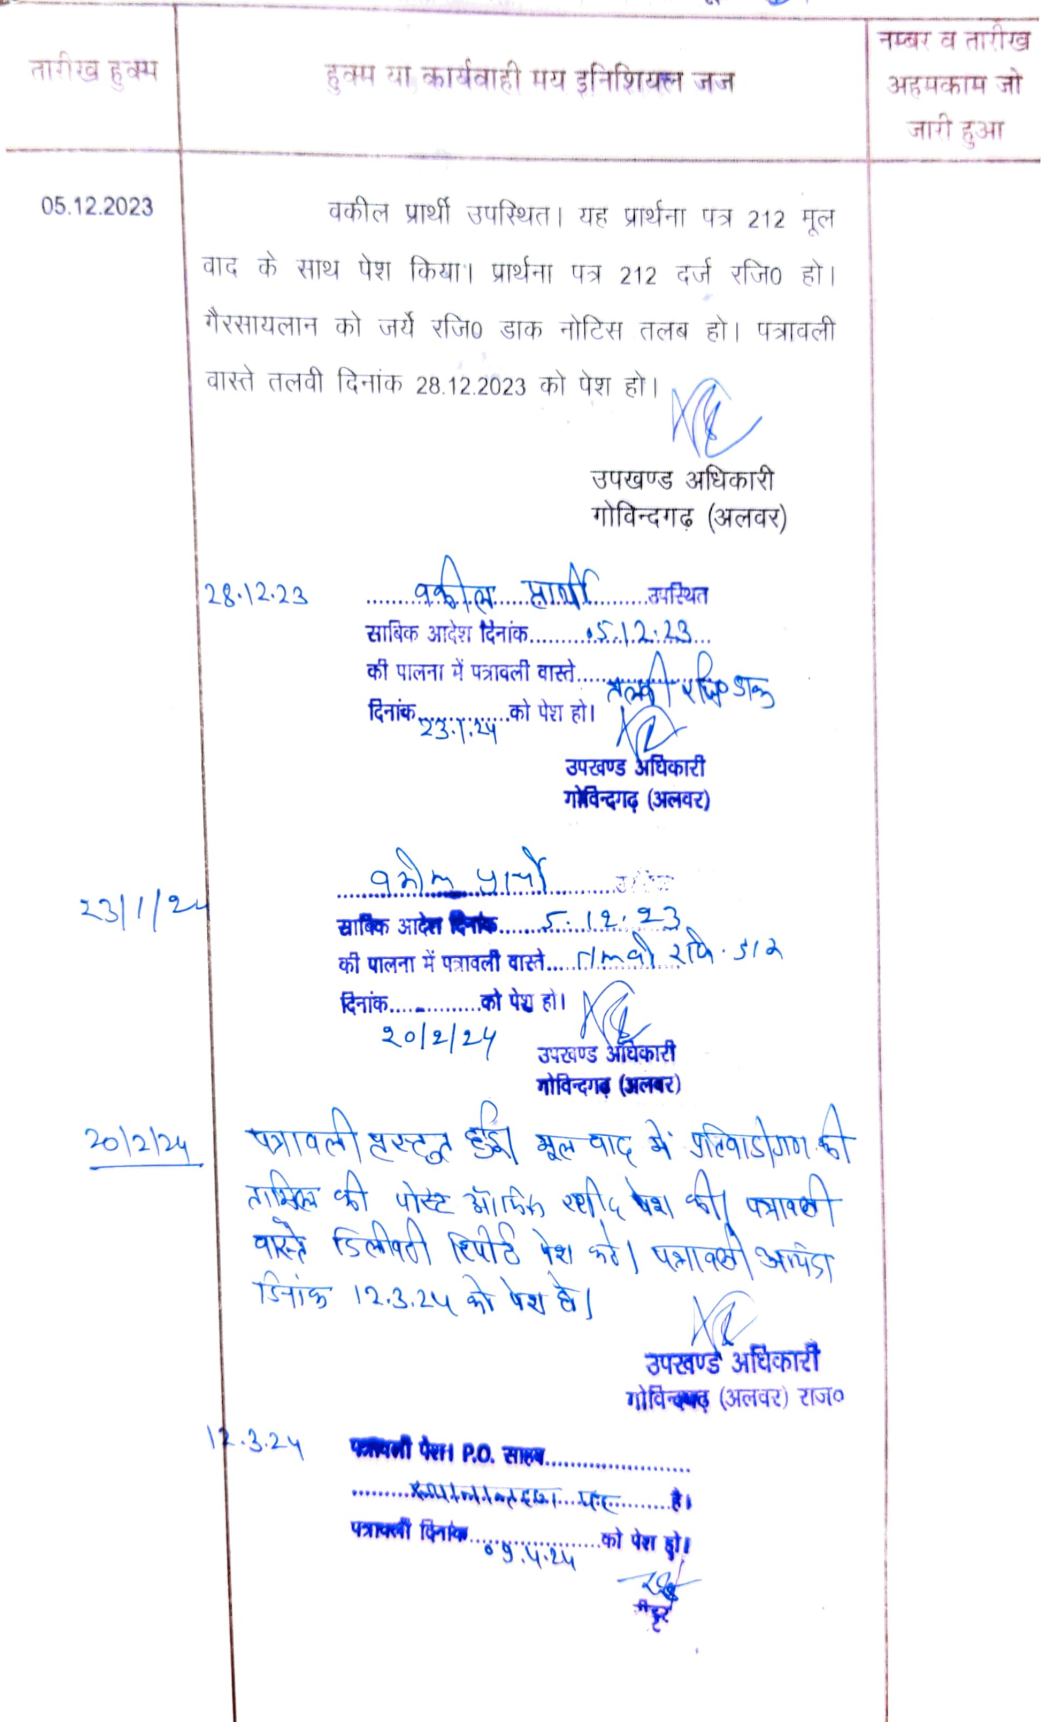 तारीख हुक्म
हुक्म या कार्यवाही मय इनिशियल जज
नम्बर व तारीख
अहमकाम जो
जारी हुआ
05.12.2023
वकील प्रार्थी उपस्थित। यह प्रार्थना पत्र 212 मूल
वाद के साथ पेश किया। प्रार्थना पत्र 212 दर्ज रजि0 हो।
गैरसायलान को जर्ये रजि0 डाक नोटिस तलब हो। पत्रावली
वास्ते तलवी दिनांक 28.12.2023 को पेश हो।
उपखण्ड अधिकारी
गोविन्दगढ़ (अलवर)
28.12.23
वकील प्रार्थी उपस्थित
साबिक आदेश दिनांक 5.12.23
की पालना में पत्रावली वास्ते तलवी रजि० डाक
दिनांक 23.1.24 को पेश हो।
उपखण्ड अधिकारी
गोविन्दगढ़ (अलवर)
23/1/24
वकील प्रार्थी
साबिक आदेश दिनांक 5.12.23
की पालना में पत्रावली वास्ते तलवी रजि. डाक
दिनांक को पेश हो।
20/2/24
उपखण्ड अधिकारी
गोविन्दगढ़ (अलवर)
20/2/24
पत्रावली प्रस्तुत हुई। मूल वाद में प्रतिवादीगण की
तामिल की पोस्ट ऑफिस रसीद पेश की। पत्रावली
वास्ते डिलीवरी रिपोर्ट पेश करे। पत्रावली आयंदा
दिनांक 12.3.24 को पेश हो।
उपखण्ड अधिकारी
गोविन्दगढ़ (अलवर) राज०
12.3.24
पत्रावली पेश। P.O. साहब
है।
पत्रावली दिनांक 09.4.24 को पेश हो।
रीडर